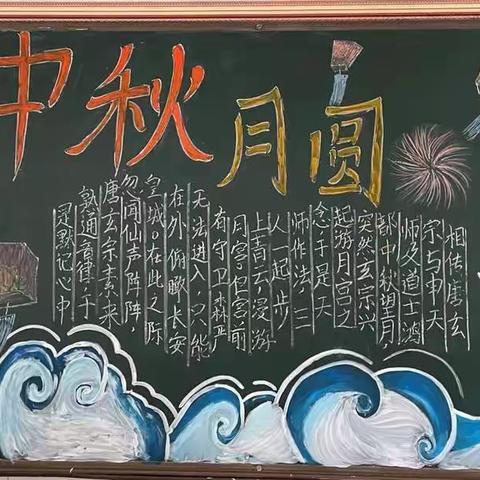 中秋月圆
相传唐玄
宗与申天
师及道士鸿
都中秋望月,
突然玄宗兴
起游月宫之
念于是天
师作法,三
人一起步
上青云漫游
月宫但宫前
有守卫森严
无法进入,只能
在外俯瞰长安
皇城。在此之际
忽闻仙声阵阵,
唐玄宗素来
熟通音律,于
是默记心中